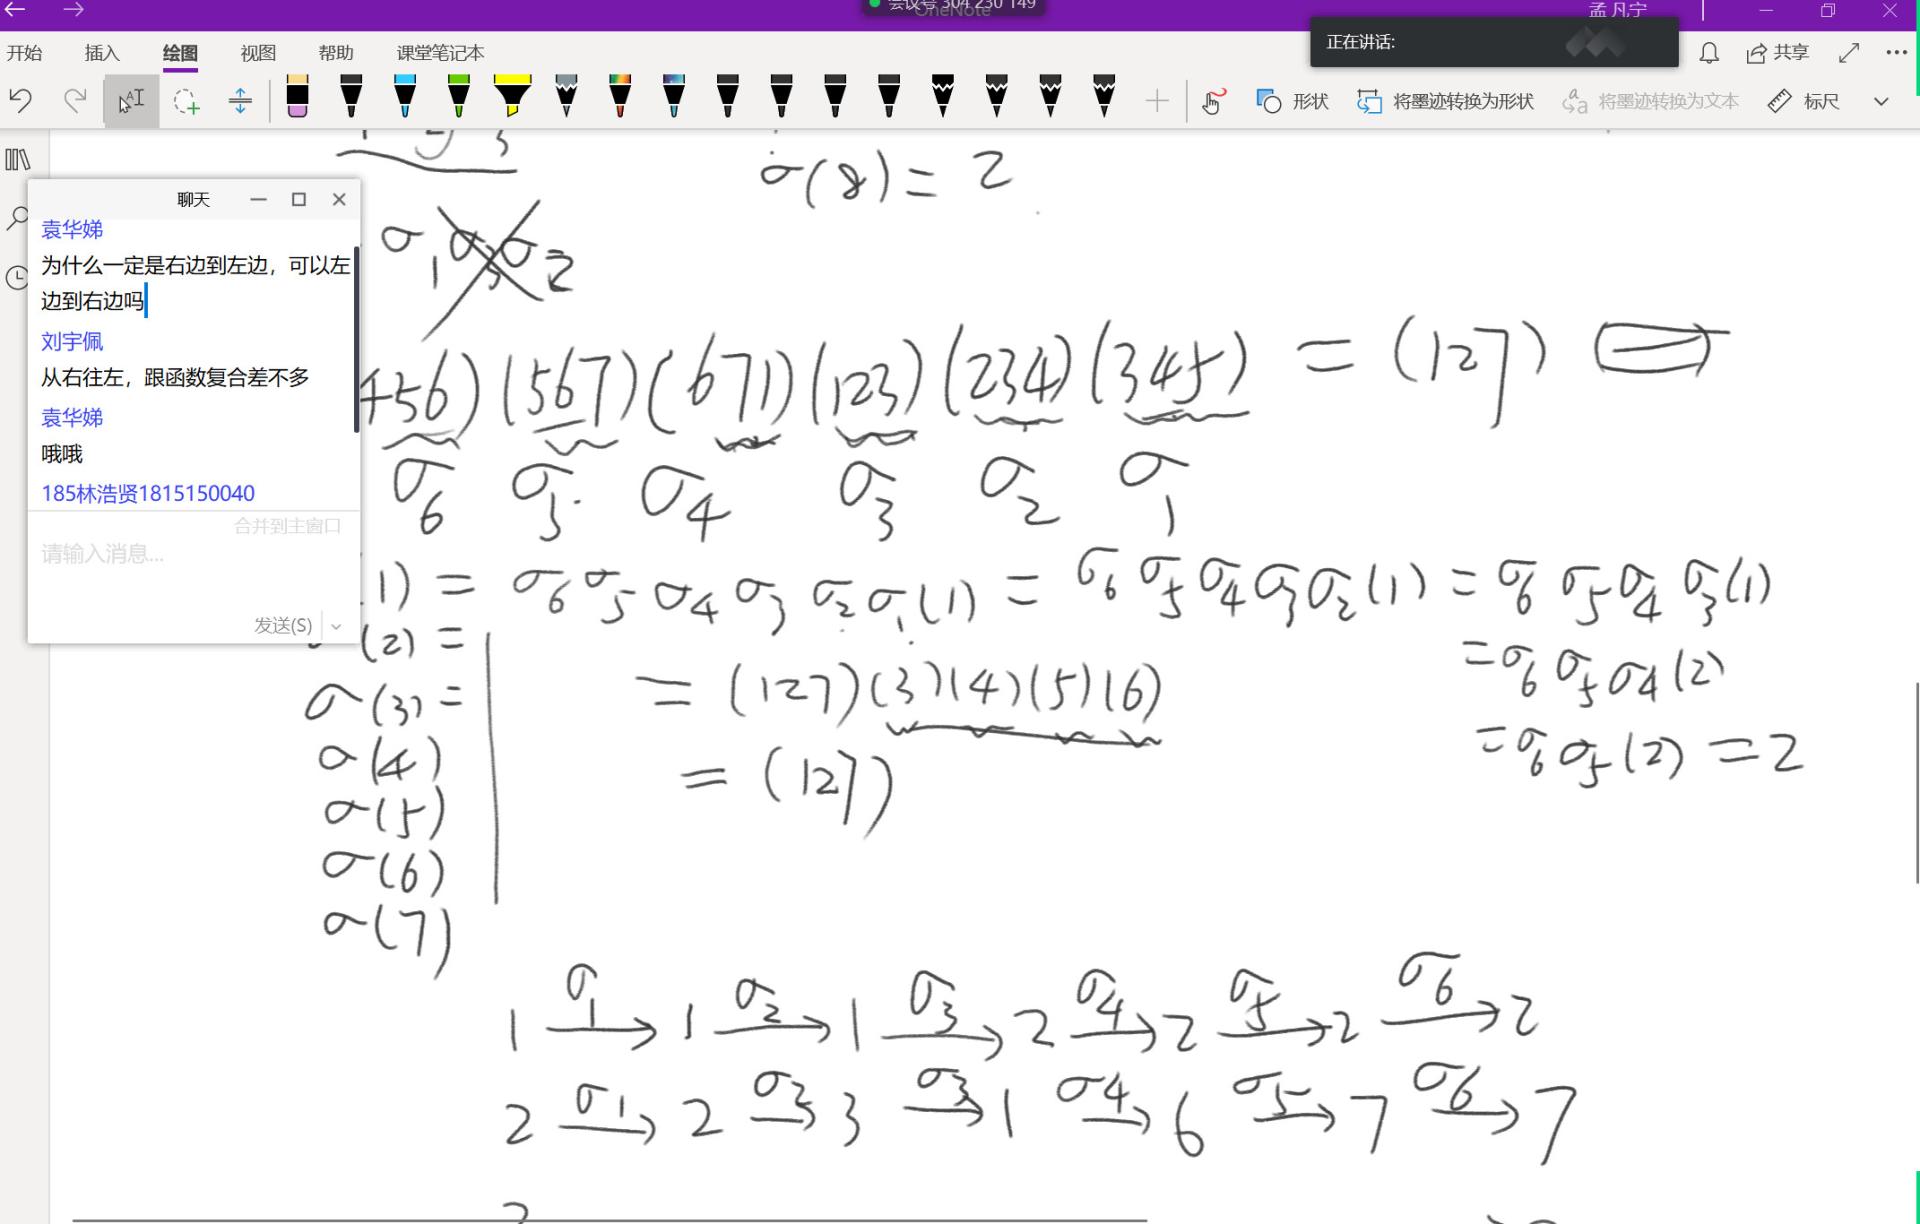 会议号 304 230 149
OneNote
孟 凡宁
正在讲话:
开始 插入 绘图 视图 帮助 课堂笔记本
共享
形状 将墨迹转换为形状 将墨迹转换为文本 标尺
聊天
袁华娣
为什么一定是右边到左边，可以左
边到右边吗
刘宇佩
从右往左，跟函数复合差不多
袁华娣
哦哦
185林浩贤1815150040
合并到主窗口
请输入消息...
发送(S)
σ(8) = 2
σ₁σ₃σ₂
456)(567)(671)(123)(234)(345) = (127)
σ₆ σ₅ σ₄ σ₃ σ₂ σ₁
(1) = σ₆σ₅σ₄σ₃σ₂σ₁(1) = σ₆σ₅σ₄σ₃σ₂(1) = σ₆σ₅σ₄σ₃(1)
= σ₆σ₅σ₄(2)
= σ₆σ₅(2) = 2
(2) =
σ(3) =
σ(4)
σ(5)
σ(6)
σ(7)
= (127)(3)(4)(5)(6)
= (127)
1 σ₁→ 1 σ₂→ 1 σ₃→ 2 σ₄→ 2 σ₅→ 2 σ₆→ 2
2 σ₁→ 2 σ₂→ 3 σ₃→ 1 σ₄→ 6 σ₅→ 7 σ₆→ 7